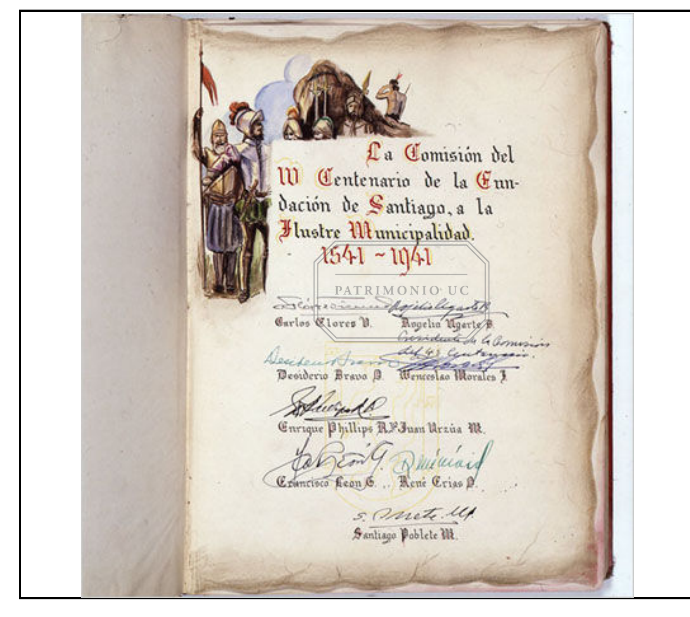 La Comisión del
IV Centenario de la Fun-
dación de Santiago, a la
Ilustre Municipalidad.
1541 ~ 1941
PATRIMONIO UC
Carlos Flores V. Rogelio Ugarte B.
Presidente de la Comisión
del 4º Centenario.
Desiderio Bravo O. Wenceslao Morales J.
Enrique Phillips R.P. Juan Urzúa M.
Francisco León G. René Frías O.
Santiago Poblete M.